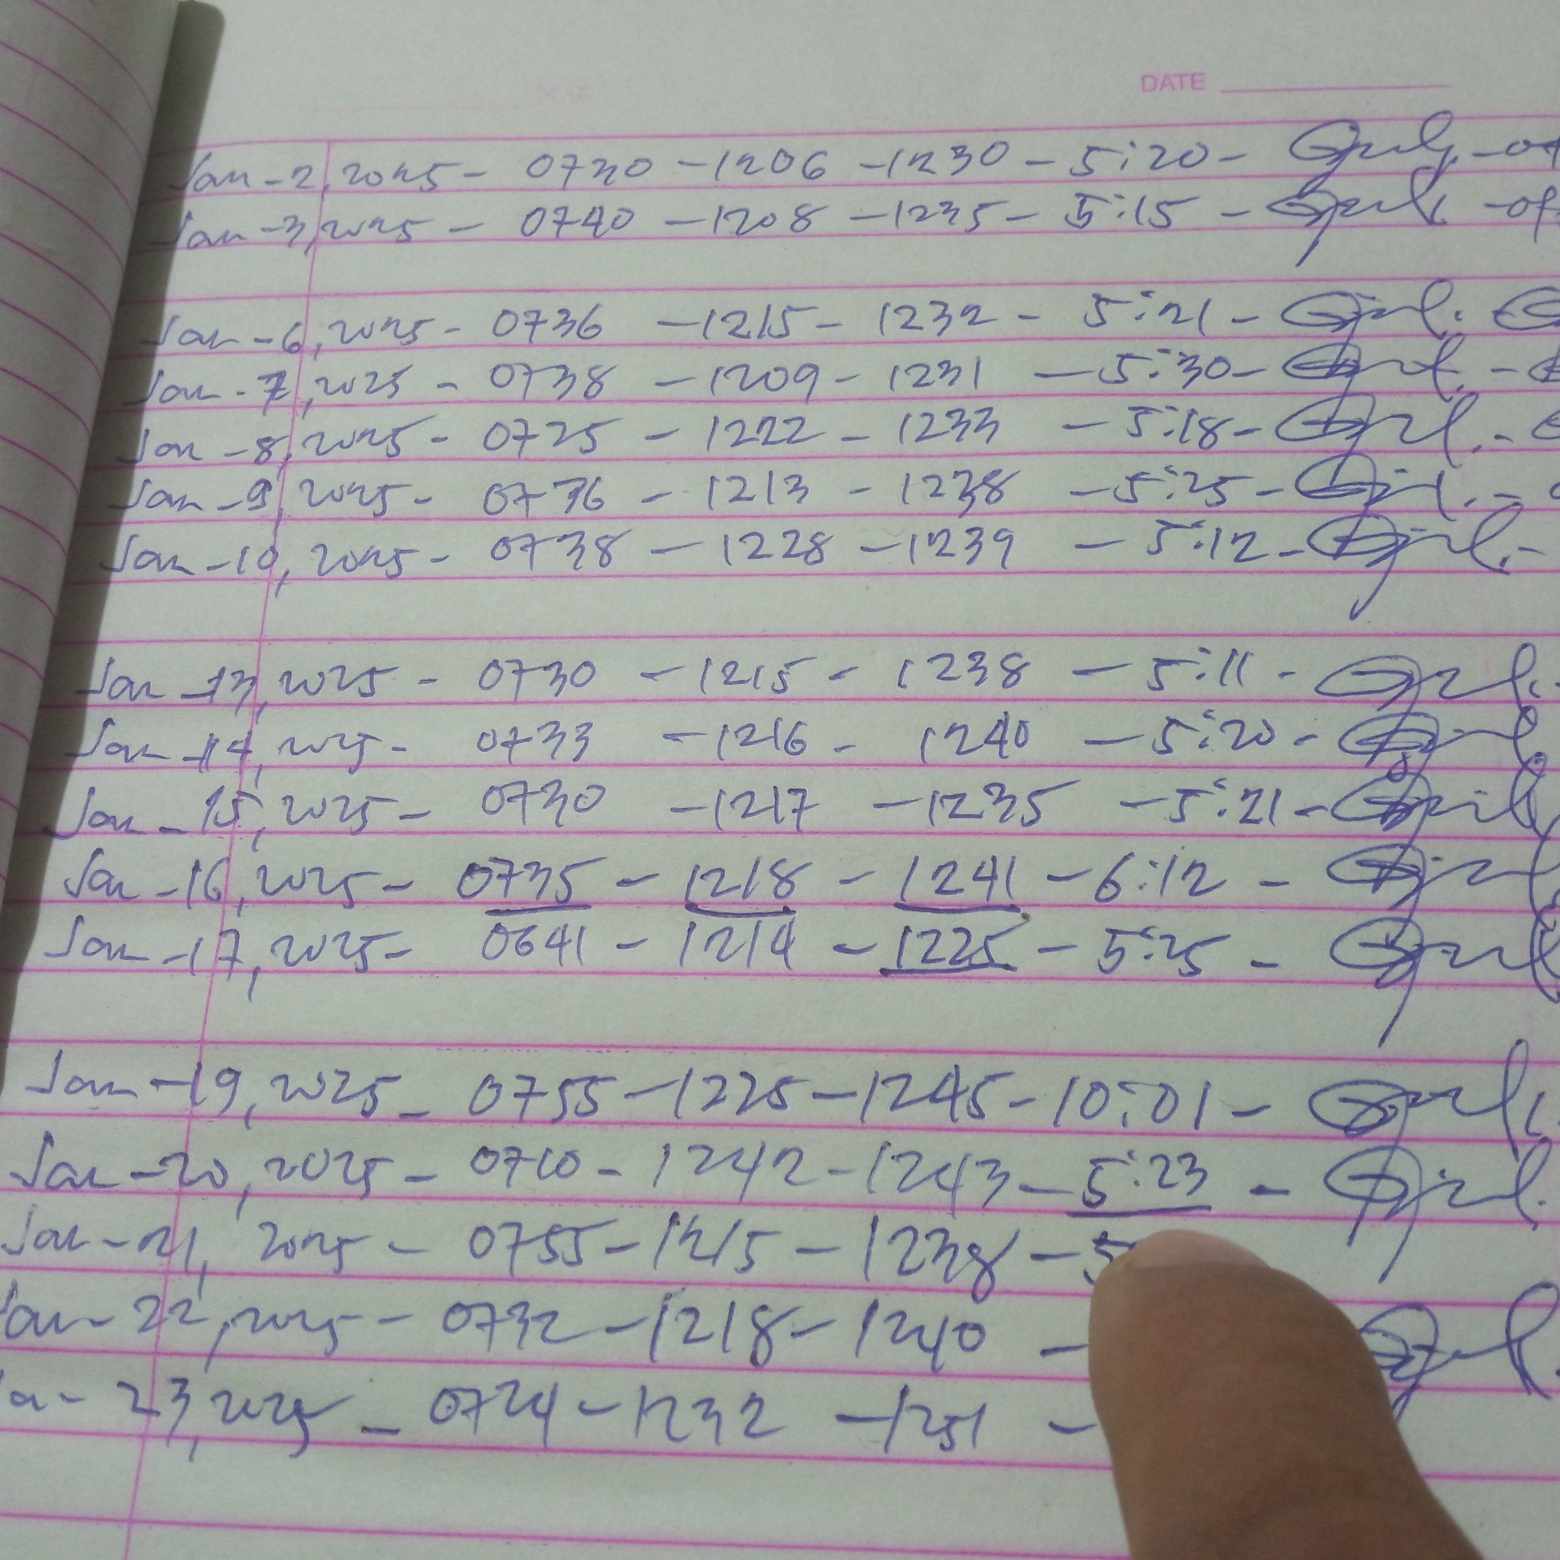 DATE
Jan - 2, 2025 - 0730 - 1206 - 1230 - 5:20 -
Jan - 3, 2025 - 0740 - 1208 - 1235 - 5:15 -
Jan - 6, 2025 - 0736 - 1215 - 1232 - 5:21 -
Jan - 7, 2025 - 0738 - 1209 - 1231 - 5:30 -
Jan - 8, 2025 - 0725 - 1222 - 1233 - 5:18 -
Jan - 9, 2025 - 0736 - 1213 - 1238 - 5:25 -
Jan - 10, 2025 - 0738 - 1228 - 1239 - 5:12 -
Jan - 13, 2025 - 0730 - 1215 - 1238 - 5:11 -
Jan - 14, 2025 - 0733 - 1216 - 1240 - 5:20 -
Jan - 15, 2025 - 0730 - 1217 - 1235 - 5:21 -
Jan - 16, 2025 - 0735 - 1218 - 1241 - 6:12 -
Jan - 17, 2025 - 0641 - 1214 - 1225 - 5:25 -
Jan - 19, 2025 - 0755 - 1225 - 1245 - 10:01 -
Jan - 20, 2025 - 0710 - 1242 - 1243 - 5:23 -
Jan - 21, 2025 - 0755 - 1215 - 1238 - 5
Jan - 22, 2025 - 0732 - 1218 - 1240 -
23, 2025 - 0724 - 1232 - 1251 -